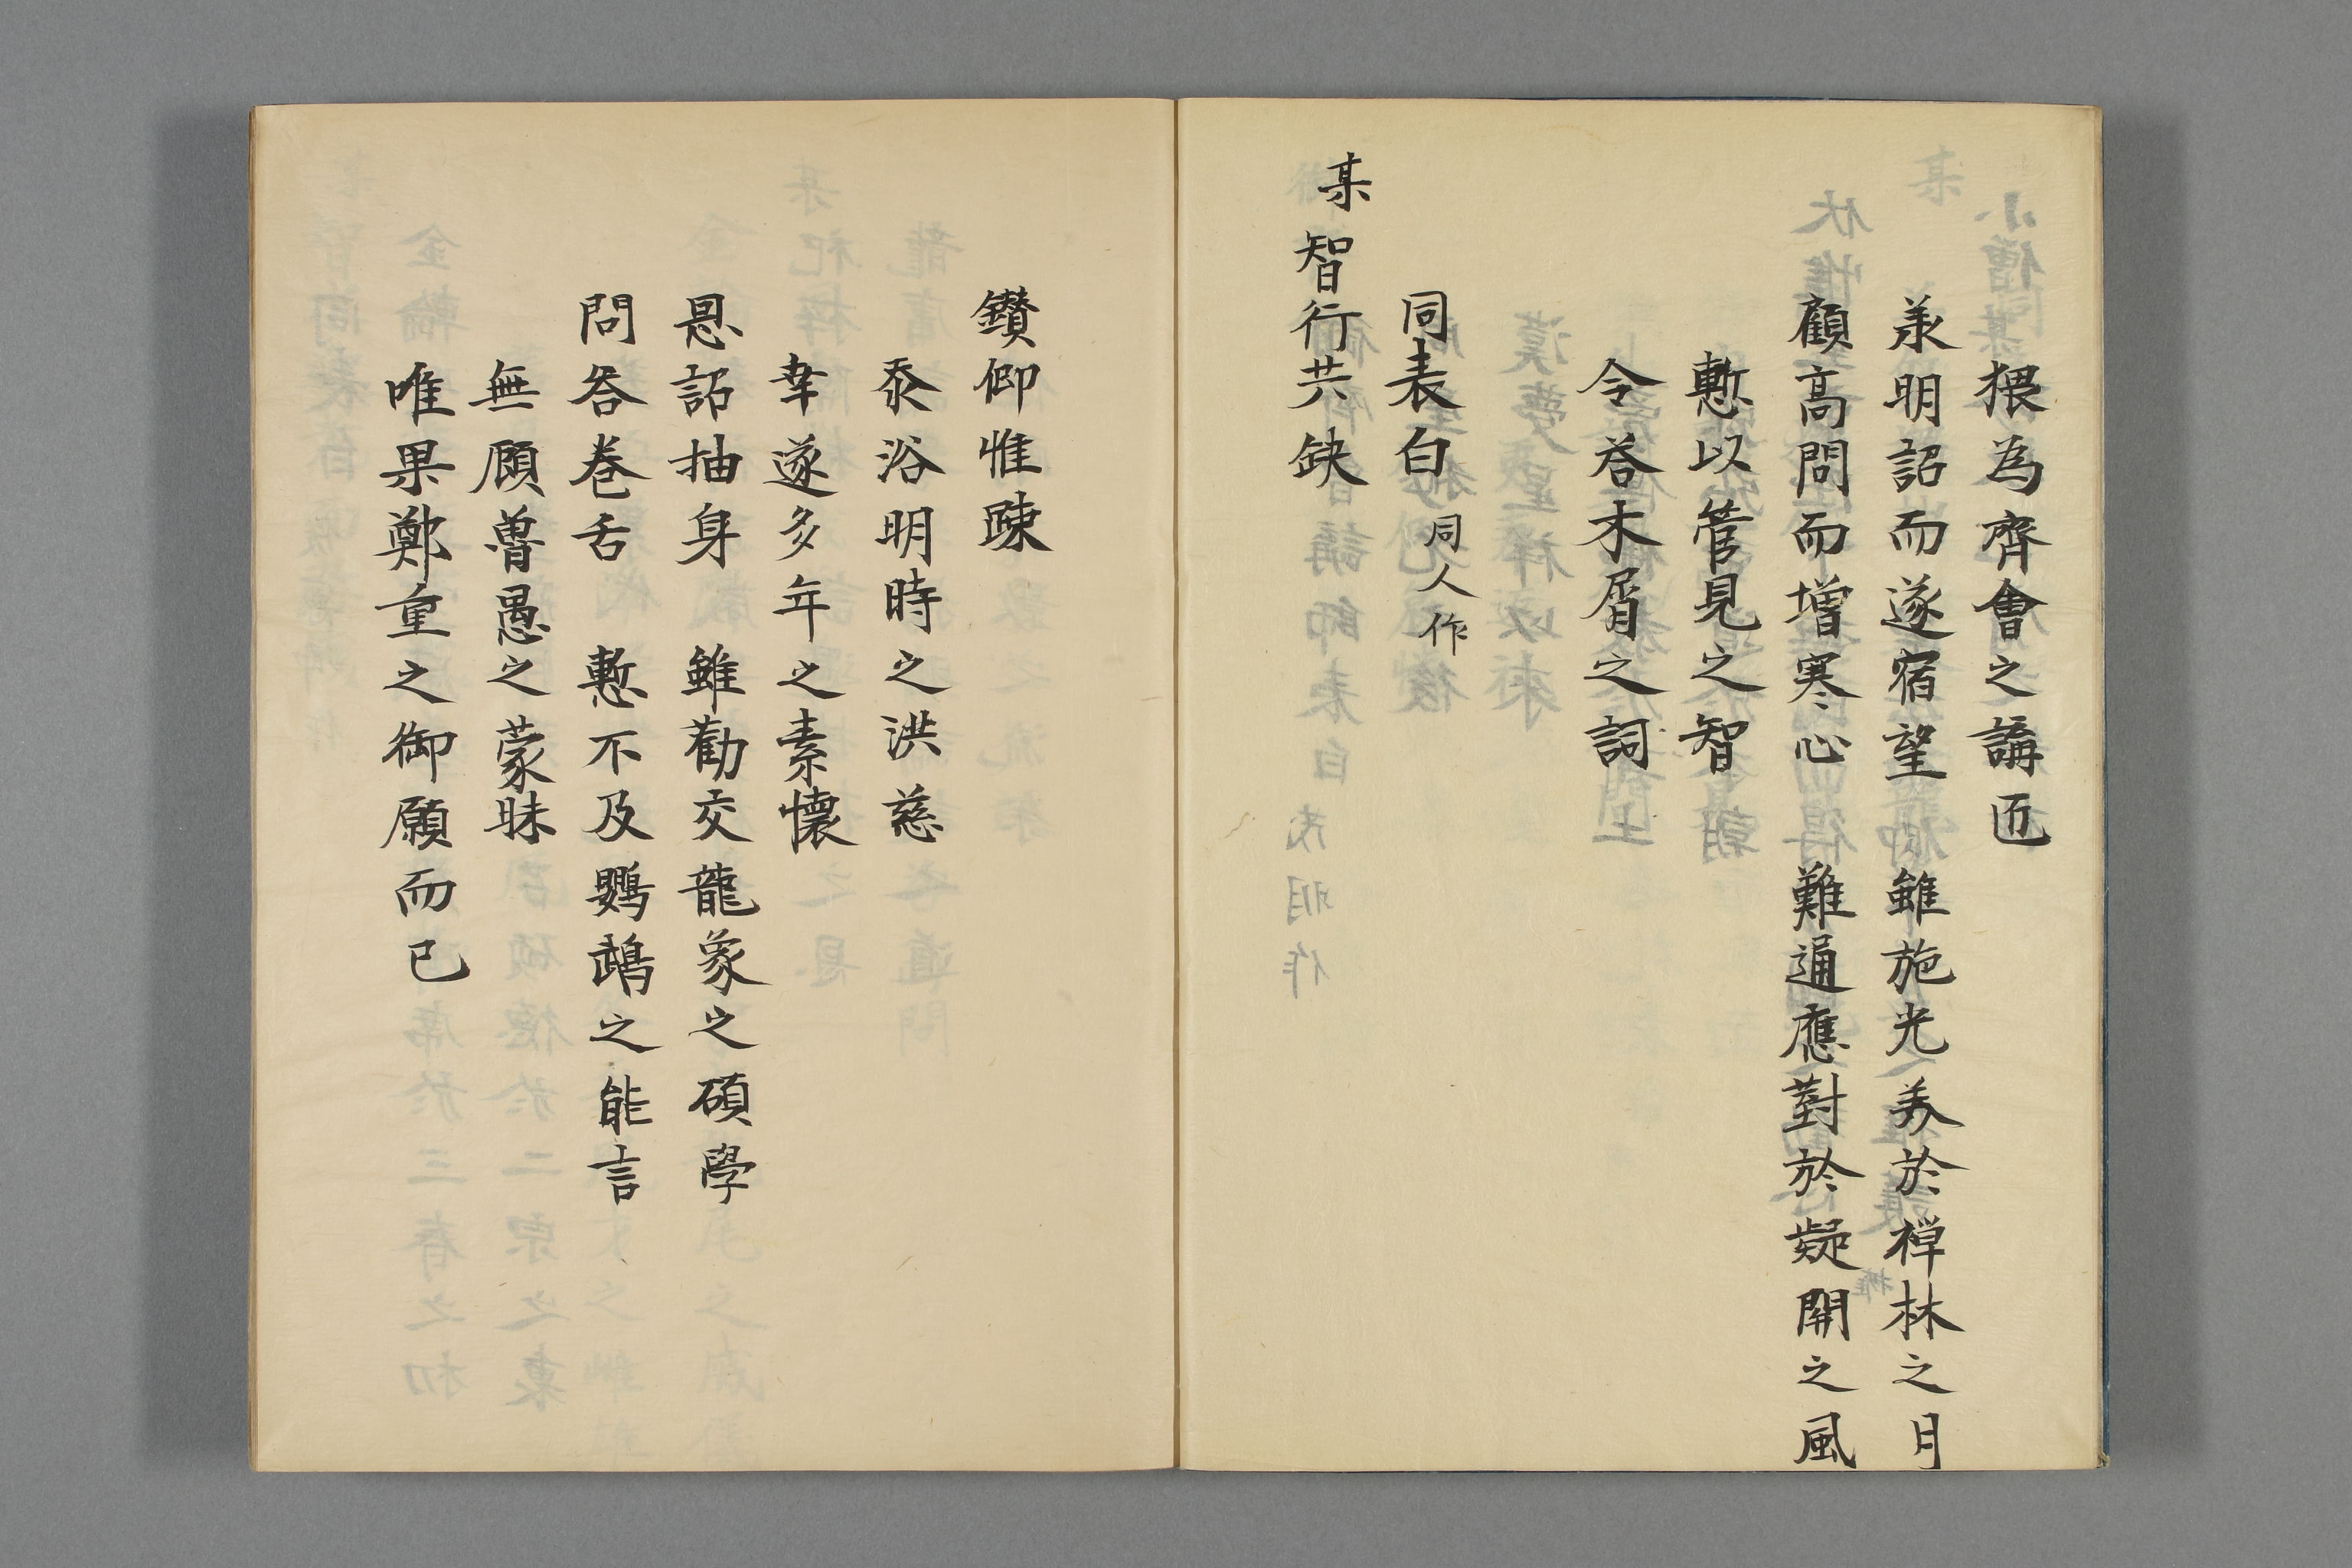 猥為齊會之講匠
承明詔而遂宿望 雖施光美於禅林之月
顧高問而增寒心 難通應對於疑開之風
慙以管見之智
令荅木屑之詞
同表白 同人作
某智行共缺
鑚仰惟踈
忝浴明時之洪慈
幸遂多年之素懷
恩詔抽身 雖勸交龍象之碩學
問荅巻舌 慙不及鸚鵡之能言
無顧曽愚之蒙昧
唯果鄭重之御願而已